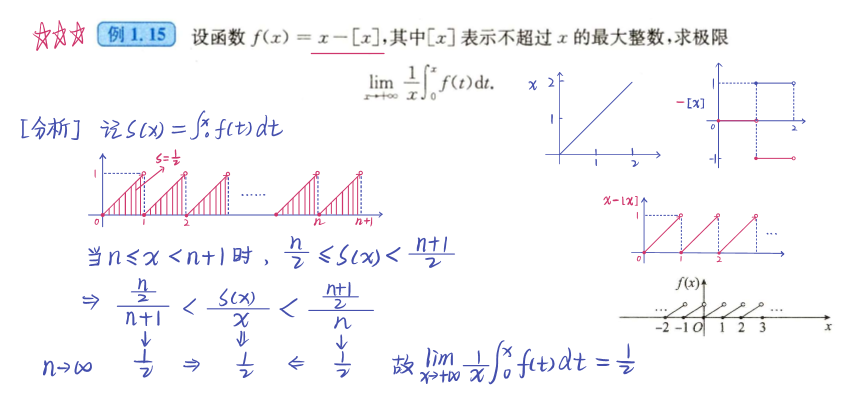 ☆☆☆ 例 1.15 设函数 f(x) = x − [x],其中[x]表示不超过 x 的最大整数,求极限
lim x→+∞ 1/x ∫₀ˣ f(t)dt.
[分析] 记 S(x) = ∫₀ˣ f(t)dt
S=1/2
1
0 1 2 …… n n+1
当 n ≤ x < n+1 时, n/2 ≤ S(x) < (n+1)/2
⇒ (n/2)/(n+1) < S(x)/x < ((n+1)/2)/n
↓ ⇓ ↓
n→∞ 1/2 ⇒ 1/2 ⇐ 1/2 故 lim x→+∞ 1/x ∫₀ˣ f(t)dt = 1/2
x 2
1
1 2
−[x]
1
0 2
-1
x−[x]
1
0 1 2 …
f(x)
… …
−2 −1 O 1 2 3 x